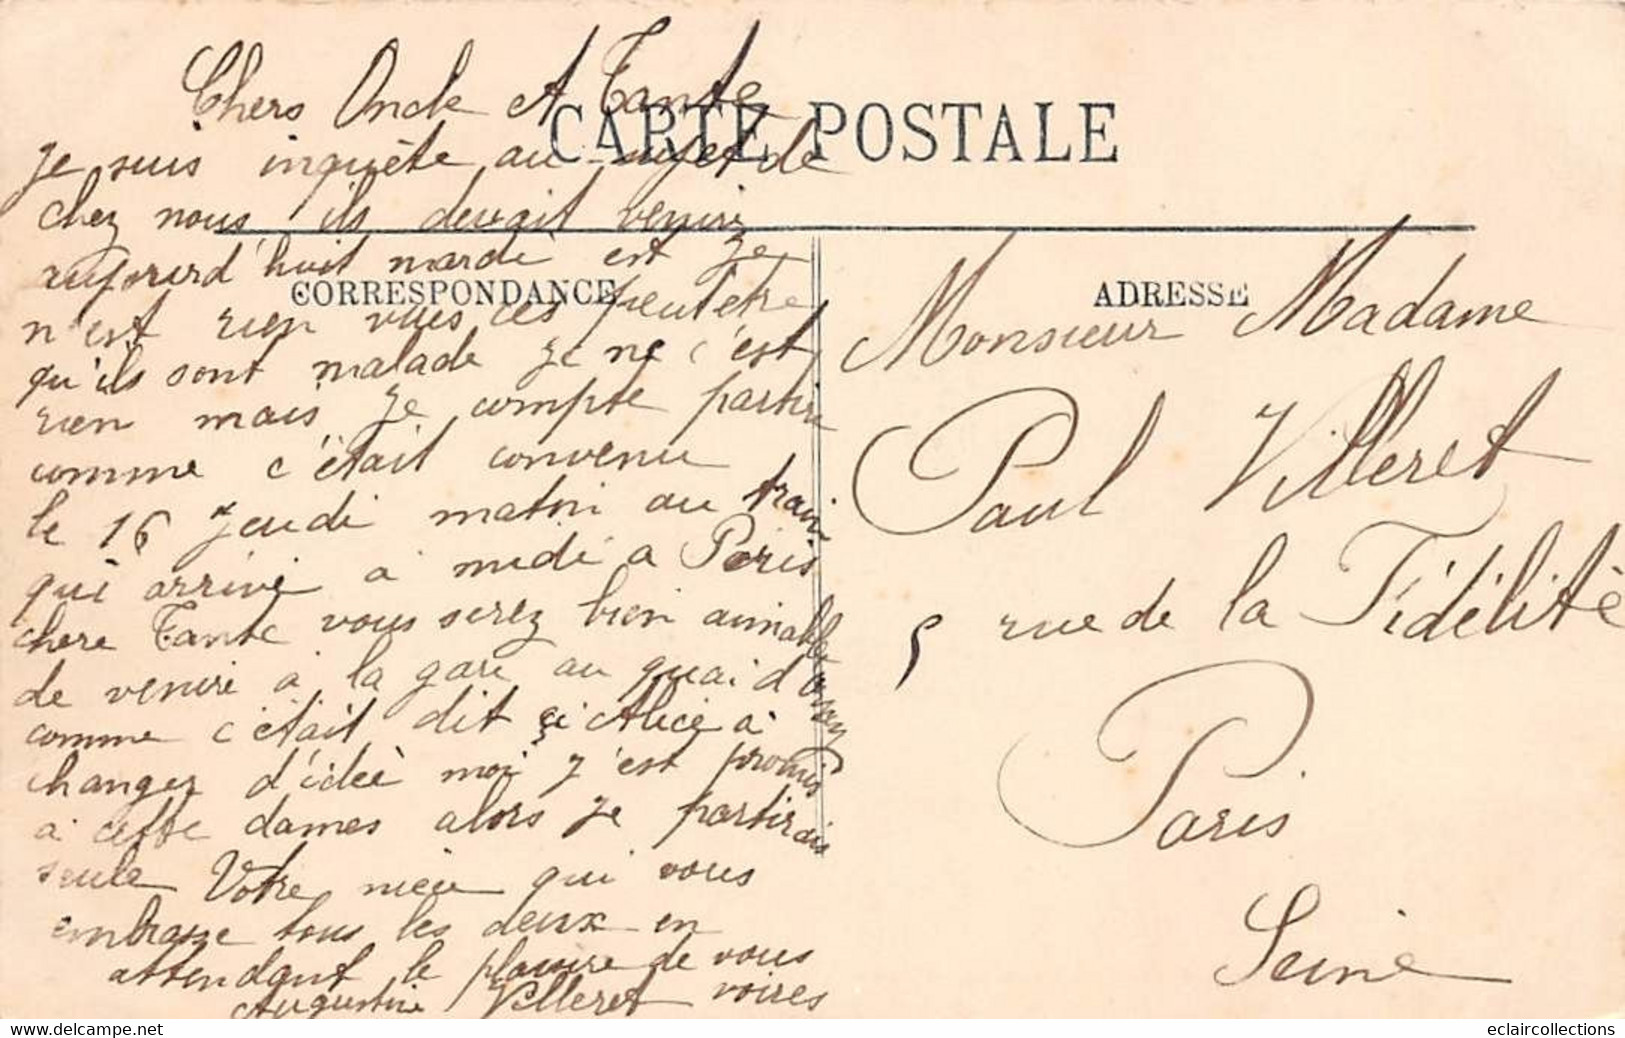 Chers Oncle et Tante
CARTE POSTALE
je suis inquète au sujet de
chez nous ils devait venir
aujourd'huit mardi est je
n'est rien vus ces peutetre
qu'ils sont malade je ne c'est
rien mais je compte partir
comme c'était convenu
le 16 jeudi matin au train
qui arrive a midi a Paris
chere Tante vous serez bien aimable
de venire a la gare au quai d'orsay
comme c'était dit si Alice a
changer d'ideé moi j'est promis
a cette dames alors je partirais
seule Votre niece qui vous
embrasse tous les deux en
attendant le plaisire de vous
voires
Augustine Villeret
CORRESPONDANCE
ADRESSE
Monsieur Madame
Paul Villeret
5 rue de la Fidélité
Paris
Seine
eclaircollections
www.delcampe.net